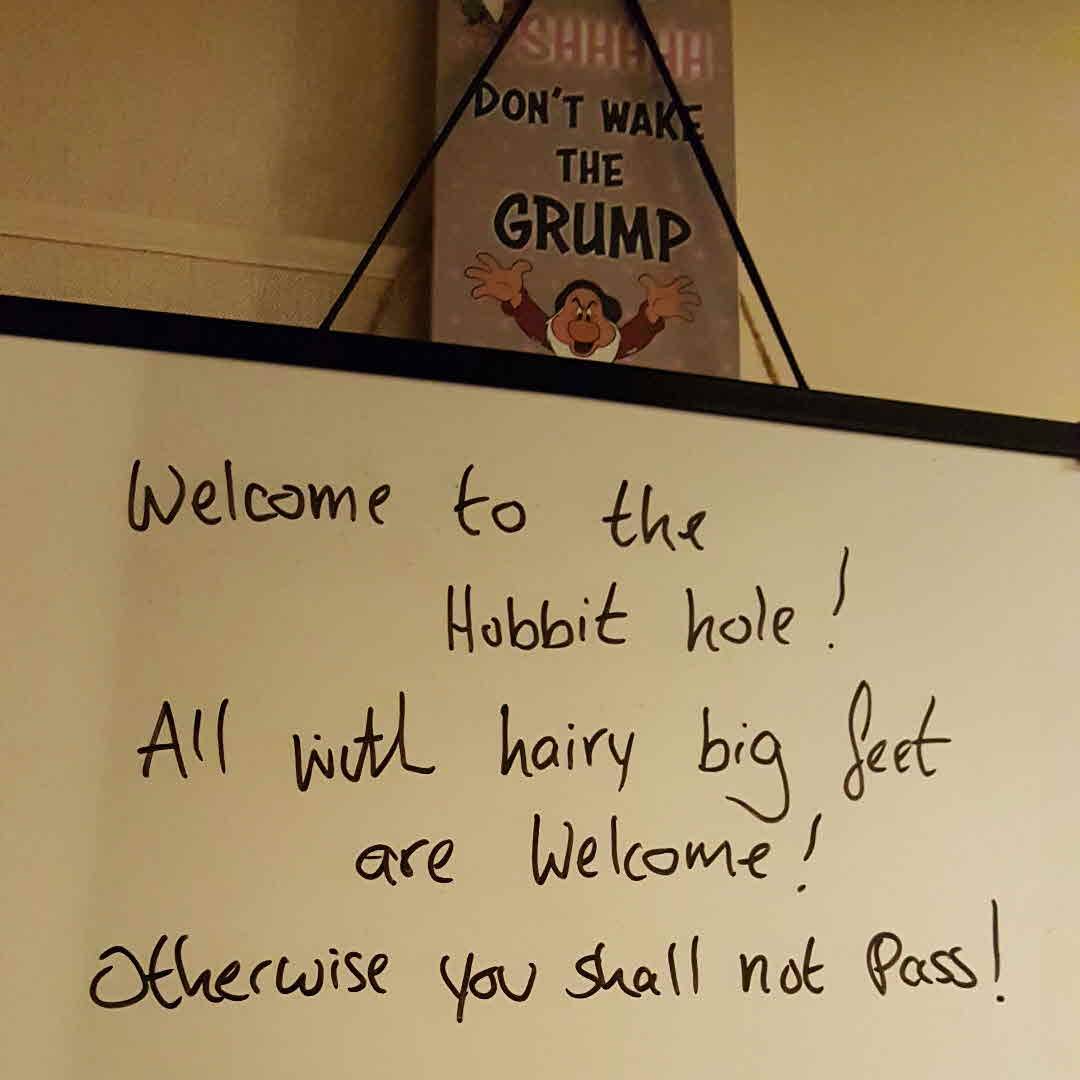 SHHHHH
DON'T WAKE
THE
GRUMP
Welcome to the
Hobbit hole!
All with hairy big feet
are Welcome!
Otherwise you shall not Pass!